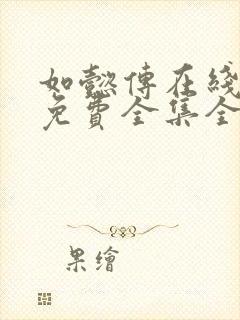 如懿傳在綫
免費全集全
果繪